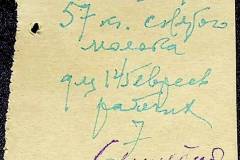 57 кг. снятого
молока
для 145 евреев
рабочих
7